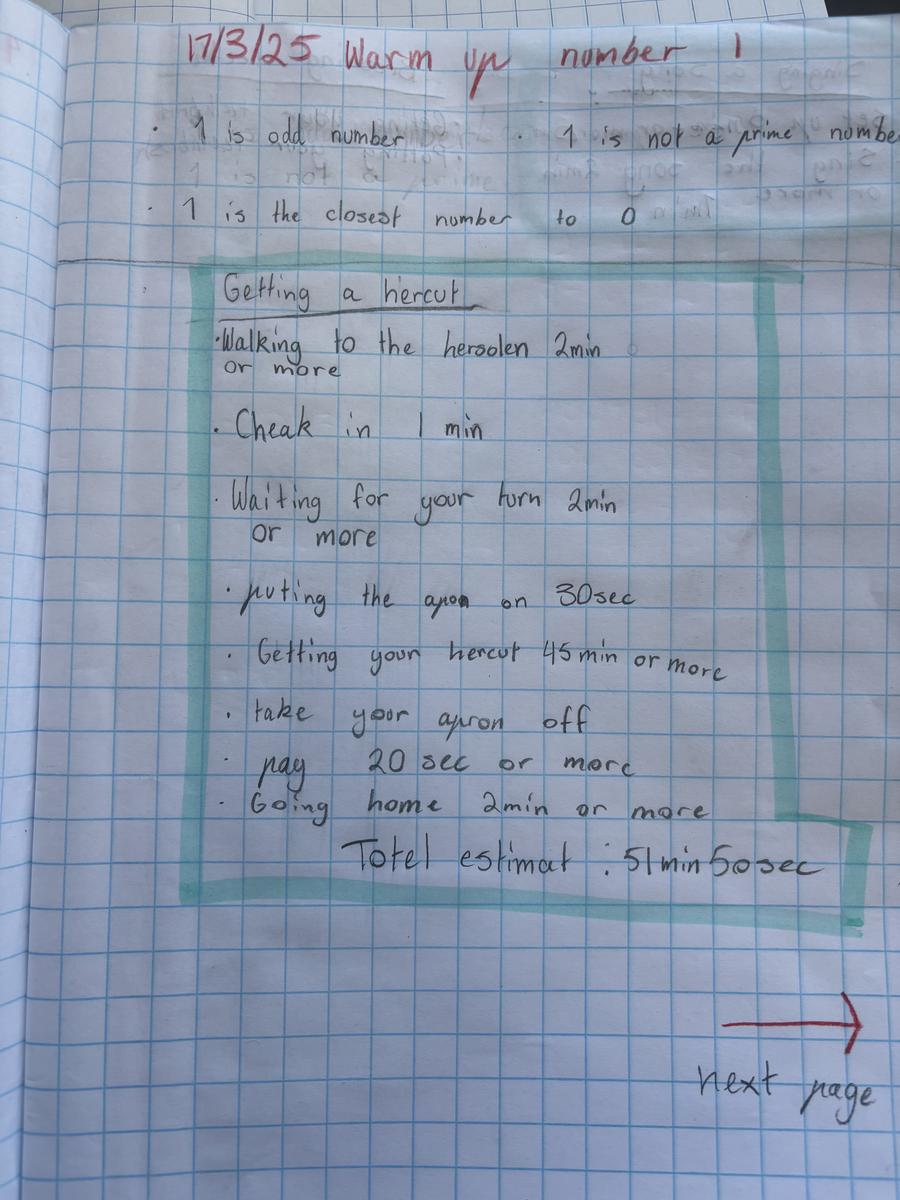 17/3/25 Warm up number 1
· 1 is odd number · 1 is not a prime numbe
· 1 is the closest number to 0
Getting a hercut
·Walking to the hersolen 2min
or more
· Cheak in 1 min
· Waiting for your turn 2min
or more
· puting the apron on 30sec
· Getting your hercut 45min or more
· take your apron off
· pay 20 sec or more
· Going home 2min or more
Totel estimat : 51min 50sec
next page